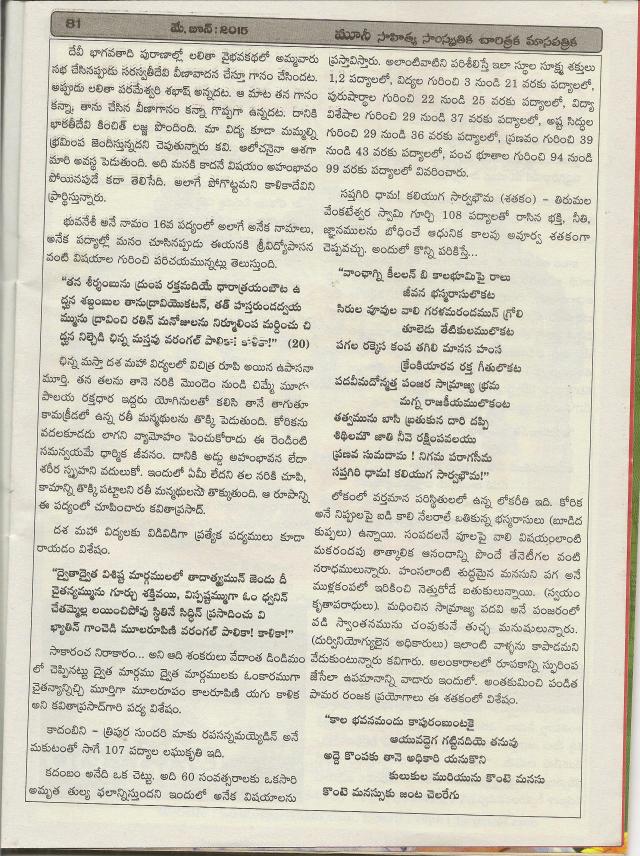 81 మే, జూన్ : 2015 మూసీ సాహిత్య సాంస్కృతిక చారిత్రక మాసపత్రిక
దేవీ భాగవతాది పురాణాల్లో లలితా వైభవకథలో అమ్మవారు
సభ చేసినప్పుడు సరస్వతీదేవి వీణావాదన చేస్తూ గానం చేసిందట.
అప్పుడు లలితా పరమేశ్వరి శభాష్ అన్నదట. ఆ మాట తన గానం
కన్నా, తాను చేసిన వీణాగానం కన్నా గొప్పగా ఉన్నదట. దానికి
భారతీదేవి కించిత్ లజ్జ పొందింది. మా విద్య కూడా మమ్మల్ని
భ్రమింప జెందిస్తున్నదని చెపుతున్నారు కవి. ఆలోచనైనా ఆశగా
మారి అవస్థ పెడుతుంది. అది మనకి కాదనే విషయం అహంభావం
పోయినపుడే కదా తెలిసేది. అలాగే పోగొట్టమని కాళికాదేవిని
ప్రార్థిస్తున్నారు.
భువనేశీ అనే నామం 16వ పద్యంలో అలాగే అనేక నామాలు,
అనేక పద్యాల్లో మనం చూసినప్పుడు ఈయనకి శ్రీవిద్యోపాసన
వంటి విషయాల గురించి పరిచయమున్నట్లు తెలుస్తుంది.
“తన శీర్షంబును ద్రుంప రక్తమదియే ధారాత్రయంబౌట ఉ
ద్ధన శబ్దంబుల తానుద్రావియొకటన్, తత్ హస్తరుందద్వయ
మ్మును ద్రావించి రతిన్ మనోజులను నిర్మూలింప మర్దించు చి
ద్ధన నిల్చెడి ఛిన్న మస్తవు వరంగల్ పాలికా! కాళికా!” (20)
ఛిన్న మస్తా దశ మహా విద్యలలో విచిత్ర రూపి అయిన ఉపాసనా
మూర్తి. తన తలను తానె నరికి మొండెం నుండి చిమ్మే మూడు
పాలయ రక్తధార ఇద్దరు యోగినులతో కలిసి తానే తాగుతూ
కామక్రీడలో ఉన్న రతీ మన్మథులను తొక్కి పెడుతుంది. కోరికను
వదలకూడదు లాగని వ్యామోహం పెంచుకోరాదు ఈ రెండింటి
సమన్వయమే ధార్మిక జీవనం. దానికి అడ్డు అహంభావన లేదా
శరీర స్పృహని వదులుకో. ఇందులో ఏమీ లేదని తల నరికి చూపి,
కామాన్ని తొక్కి పట్టాలని రతీ మన్మథులను తొక్కుతుంది. ఆ రూపాన్ని
ఈ పద్యంలో చూపించారు కవితాప్రసాద్.
దశ మహా విద్యలకు విడివిడిగా ప్రత్యేక పద్యములు కూడా
రాయడం విశేషం.
“ద్వైతాద్వైత విశిష్ట మార్గములలో తాదాత్మ్యమున్ జెందు దీ
చైతన్యమ్మును గూర్చు శక్తివయి, విస్పష్టమ్ముగా ఓం ధ్వనిన్
చేతమ్మెల్ల లయించిపోవు స్థితినే సిద్ధిన్ ప్రసాదించు వి
ఖ్యాతిన్ గాంచెడి మూలరూపిణి వరంగల్ పాలికా! కాళికా!”
సాకారంచ నిరాకారం... అని ఆది శంకరులు వేదాంత డిండిమం
లో చెప్పినట్లు ద్వైత మార్గము ద్వైత మార్గములకు ఓంకారముగా
చైతన్యాన్నిచ్చి మూర్తిగా మూలరూపం కాలరూపిణి యగు కాళిక
అని కవితాప్రసాద్‌గారి పద్య విశేషం.
కాదంబిని – త్రిపుర సుందరి మాకు రపసన్నమయ్యెడిన్ అనే
మకుటంతో సాగే 107 పద్యాల లఘుకృతి ఇది.
కదంబం అనేది ఒక చెట్టు. అది 60 సంవత్సరాలకు ఒకసారి
అమృత తుల్య ఫలాన్నిస్తుందని ఇందులో అనేక విషయాలను
ప్రస్తావిస్తారు. అలాంటివాటిని పరిశీలిస్తే ఇలా స్థూల సూక్ష్మ శక్తులు
1,2 పద్యాలలో, విద్యల గురించి 3 నుండి 21 వరకు పద్యాలలో,
పురుషార్థాల గురించి 22 నుండి 25 వరకు పద్యాలలో, విద్యా
విశేషాల గురించి 29 నుండి 37 వరకు పద్యాలలో, అష్ట సిద్ధుల
గురించి 29 నుండి 36 వరకు పద్యాలలో, ప్రణవం గురించి 39
నుండి 43 వరకు పద్యాలలో, పంచ భూతాల గురించి 94 నుండి
99 వరకు పద్యాలలో వివరించారు.
సప్తగిరి ధామ! కలియుగ సార్వభౌమ (శతకం) – తిరుమల
వేంకటేశ్వర స్వామి గూర్చి 108 పద్యాలతో రాసిన భక్తి, నీతి,
జ్ఞానములను బోధించే ఆధునిక కాలపు అపూర్వ శతకంగా
చెప్పవచ్చు. అందులో కొన్ని పరికిస్తే...
“వాంఛాగ్ని కీలలన్ బి కాలభూమిపై రాలు
జీవన భస్మరాసులొకట
సిరుల పూవుల వాలి గరళమరందమున్ గ్రోలి
తూలెడు తేటికులములొకట
పగల రక్కెస కంప తగిలి మానస హంస
క్రేంకియారవ రక్త గీతులొకట
పదవీమదోన్మత్త పంజర సామ్రాజ్య భ్రమ
మగ్న రాజకీయములొకంట
తత్వమును బాసి బ్రతుకున దారి దప్పి
శిథిలమౌ జాతి నీవె రక్షింపవలయు
ప్రణవ సుమదామ ! నిగమ పరాగసీమ
సప్తగిరి ధామ! కలియుగ సార్వభౌమ!”
లోకంలో వర్తమాన పరిస్థితులలో ఉన్న లోకరీతి ఇది. కోరిక
అనే నిప్పులపై బడి కాలి నేలరాలే ఒతికున్న భస్మరాసులు (బూడిద
కుప్పలు) ఉన్నాయి. సంపదలనే పూలపై వాలి విషయంలాంటి
మకరందపు తాత్కాలిక ఆనందాన్ని పొందే తేనెటీగల వంటి
నరాధములున్నారు. హంసలాంటి శుద్ధమైన మనసుని పగ అనే
ముళ్లకంపలో ఇరికించి నెత్తురోడే బతుకులున్నాయి. (స్వయం
కృతాపరాధులు). మధించిన సామ్రాజ్య పదవి అనే పంజరంలో
పడి స్వాంతనమును చంపుకునే తుచ్ఛ మనుషులున్నారు.
(దుర్వినియోగ్యులైన అధికారులు) ఇలాంటి వాళ్ళను కాపాడమని
వేడుకుంటున్నారు కవిగారు. అలంకారాలలో రూపకాన్ని స్ఫురింప
జేసేలా ఉపమానాన్ని వాడారు ఇందులో. అంతకుమించి పండిత
పామర రంజక ప్రయోగాలు ఈ శతకంలో విశేషం.
“కాల భవనమందు కాపురంబుంటకై
ఆయువద్దెగ గట్టినదియె తనువు
అద్దె కొంపకు తానె అధికారి యనుకొని
కులుకుల మురియును కొంటె మనసు
కొంటె మనస్సుకు జంట చెలరేగు